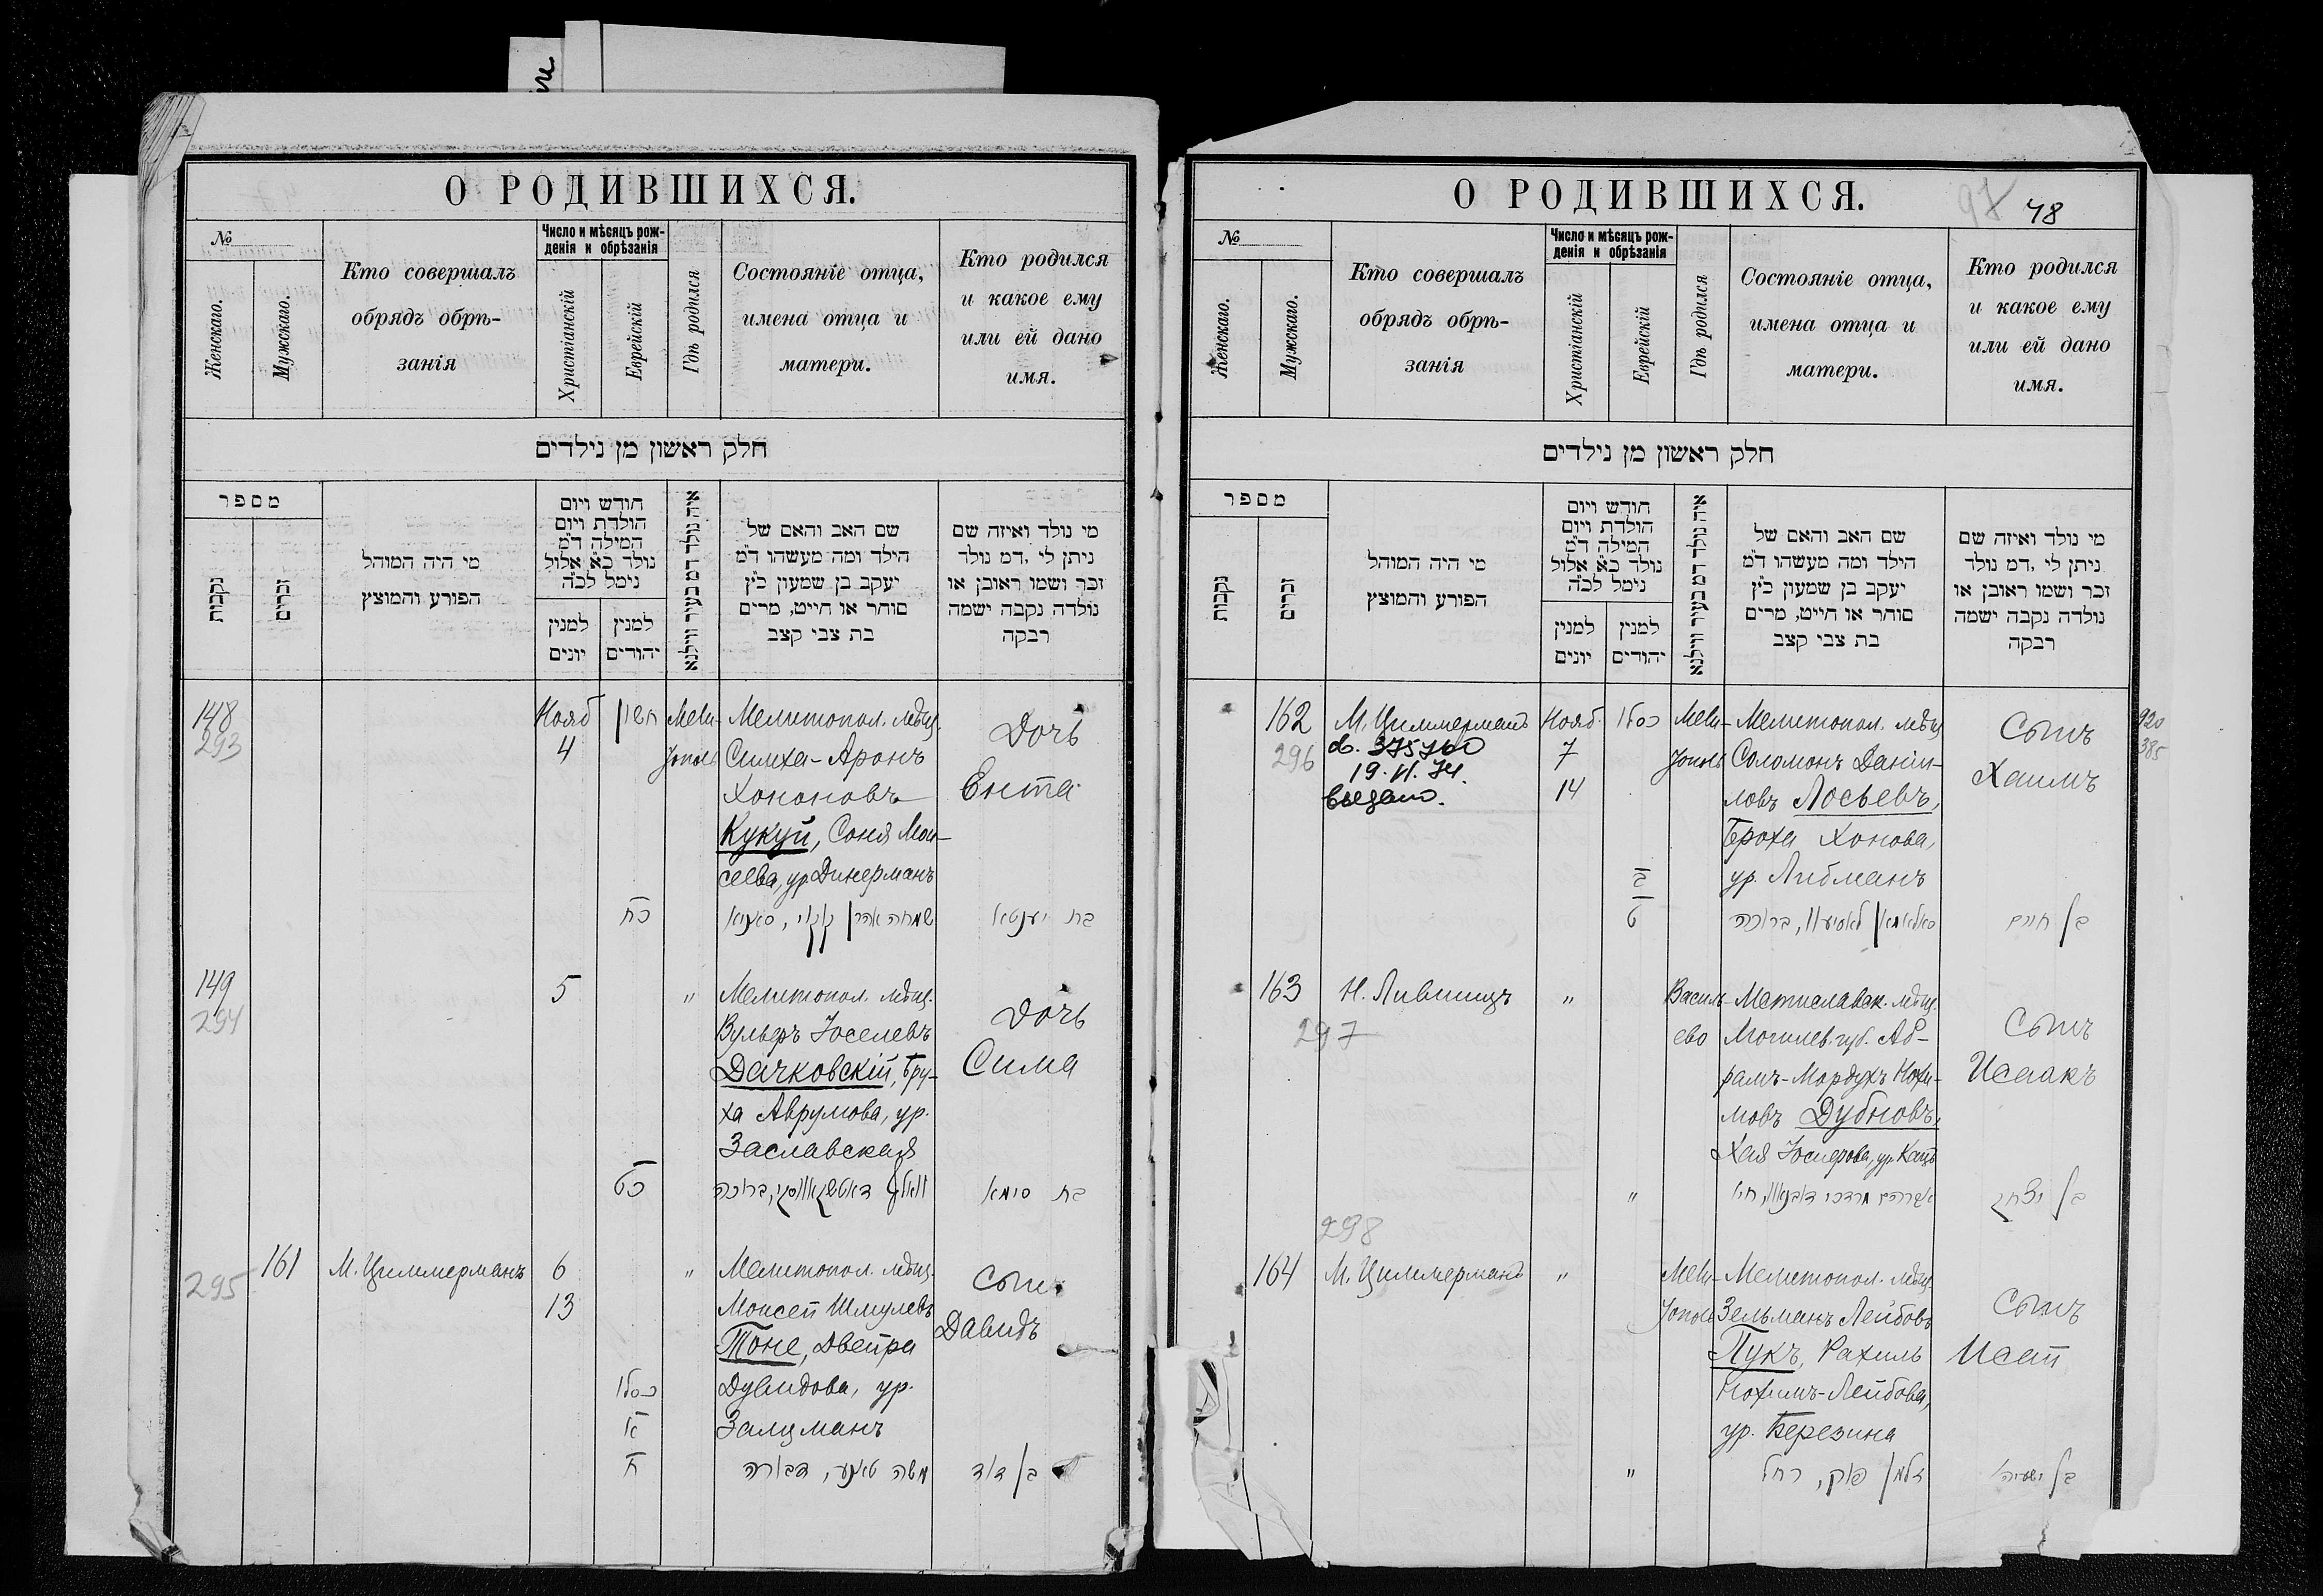 О РОДИВШИХСЯ.
№
Женскаго.
Мужескаго.
Кто совершалъ
обрядъ обрѣ-
занія
Число и мѣсяцъ рож-
денія и обрѣзанія
Христіанскій
Еврейскій
Гдѣ родился
Состояніе отца,
имена отца и
матери.
Кто родился
и какое ему
или ей дано
имя.
חלק ראשון מן נילדים
מספר
נקבות
זכרים
מי היה המוהל
הפורע והמוצץ
חודש ויום
הולדת ויום
המילה ד״מ
נולד כ״א אלול
נימל לכ״ה
למנין
יונים
למנין
יהודים
איה נולד דמ בעיר ווילנא
שם האב והאם של
הילד ומה מעשהו ד״מ
יעקב בן שמעון כ״ץ
סוחר או חייט, מרים
בת צבי קצב
מי נולד ואיזה שם
ניתן לי ,דמ נולד
זכר ושמו ראובן או
נולדה נקבה ישמה
רבקה
148
293
Нояб
4
חשון
כח
Мели-
тополь
Мелитопол. мѣщ.
Симха-Аронъ
Хононовъ
Кукуй, Соня Мои-
сеева, ур. Динерманъ
שמחה אהרן קוקוי, סאניא
Дочь
Ента
בת יענטא
149
294
5
כט
"
Мелитопол. мѣщ.
Вульфъ Іоселевъ
Дачковскій, Бру-
ха Аврумова, ур.
Заславская
וואלף דאטשקאווסקי, ברוכה
Дочь
Сима
בת סימא
161
295
М. Циммерманъ
6
13
כסלו
א
ח
"
Мелитопол. мѣщ.
Моисей Шмулевъ
Тоне, Двейра
Дувидова, ур.
Залцманъ
משה טאנע, דבורה
Сынъ
Давидъ
בן דוד
О РОДИВШИХСЯ.
98 48
№
Женскаго.
Мужескаго.
Кто совершалъ
обрядъ обрѣ-
занія
Число и мѣсяцъ рож-
денія и обрѣзанія
Христіанскій
Еврейскій
Гдѣ родился
Состояніе отца,
имена отца и
матери.
Кто родился
и какое ему
или ей дано
имя.
חלק ראשון מן נילדים
מספר
נקבות
זכרים
מי היה המוהל
הפורע והמוצץ
חודש ויום
הולדת ויום
המילה ד״מ
נולד כ״א אלול
נימל לכ״ה
למנין
יונים
למנין
יהודים
איה נולד דמ בעיר ווילנא
שם האב והאם של
הילד ומה מעשהו ד״מ
יעקב בן שמעון כ״ץ
סוחר או חייט, מרים
בת צבי קצב
מי נולד ואיזה שם
ניתן לי ,דמ נולד
זכר ושמו ראובן או
נולדה נקבה ישמה
רבקה
162
296
М. Циммерманъ
19. VI. 74.
Нояб.
7
14
כסלו
ב
ט
Мели-
тополь
Мелитопол. мѣщ.
Соломонъ Даніи-
ловъ Лосьевъ,
Броха Хонова,
ур. Либманъ
סאלאמאן לאסיעוו, ברוכה
Сынъ
Хаимъ
בן חיים
920
385
163
297
Н. Лившицъ
"
"
Василь-
ево
Мстиславск. мѣщ.
Могилев. губ. Аб-
рамъ-Мордухъ Нохи-
мовъ Дубновъ,
Хая Іосифова, ур. Кацъ
אברהם מרדכי דובנאוו, חיה
Сынъ
Исаакъ
בן יצחק
298
164
М. Циммерманъ
"
"
Мели-
тополь
Мелитопол. мѣщ.
Зельманъ Лейбовъ
Пукъ, Рахиль
Нохимъ-Лейбова,
ур. Березина
זלמן פוק, רחל
Сынъ
Исай
בן ישעיה